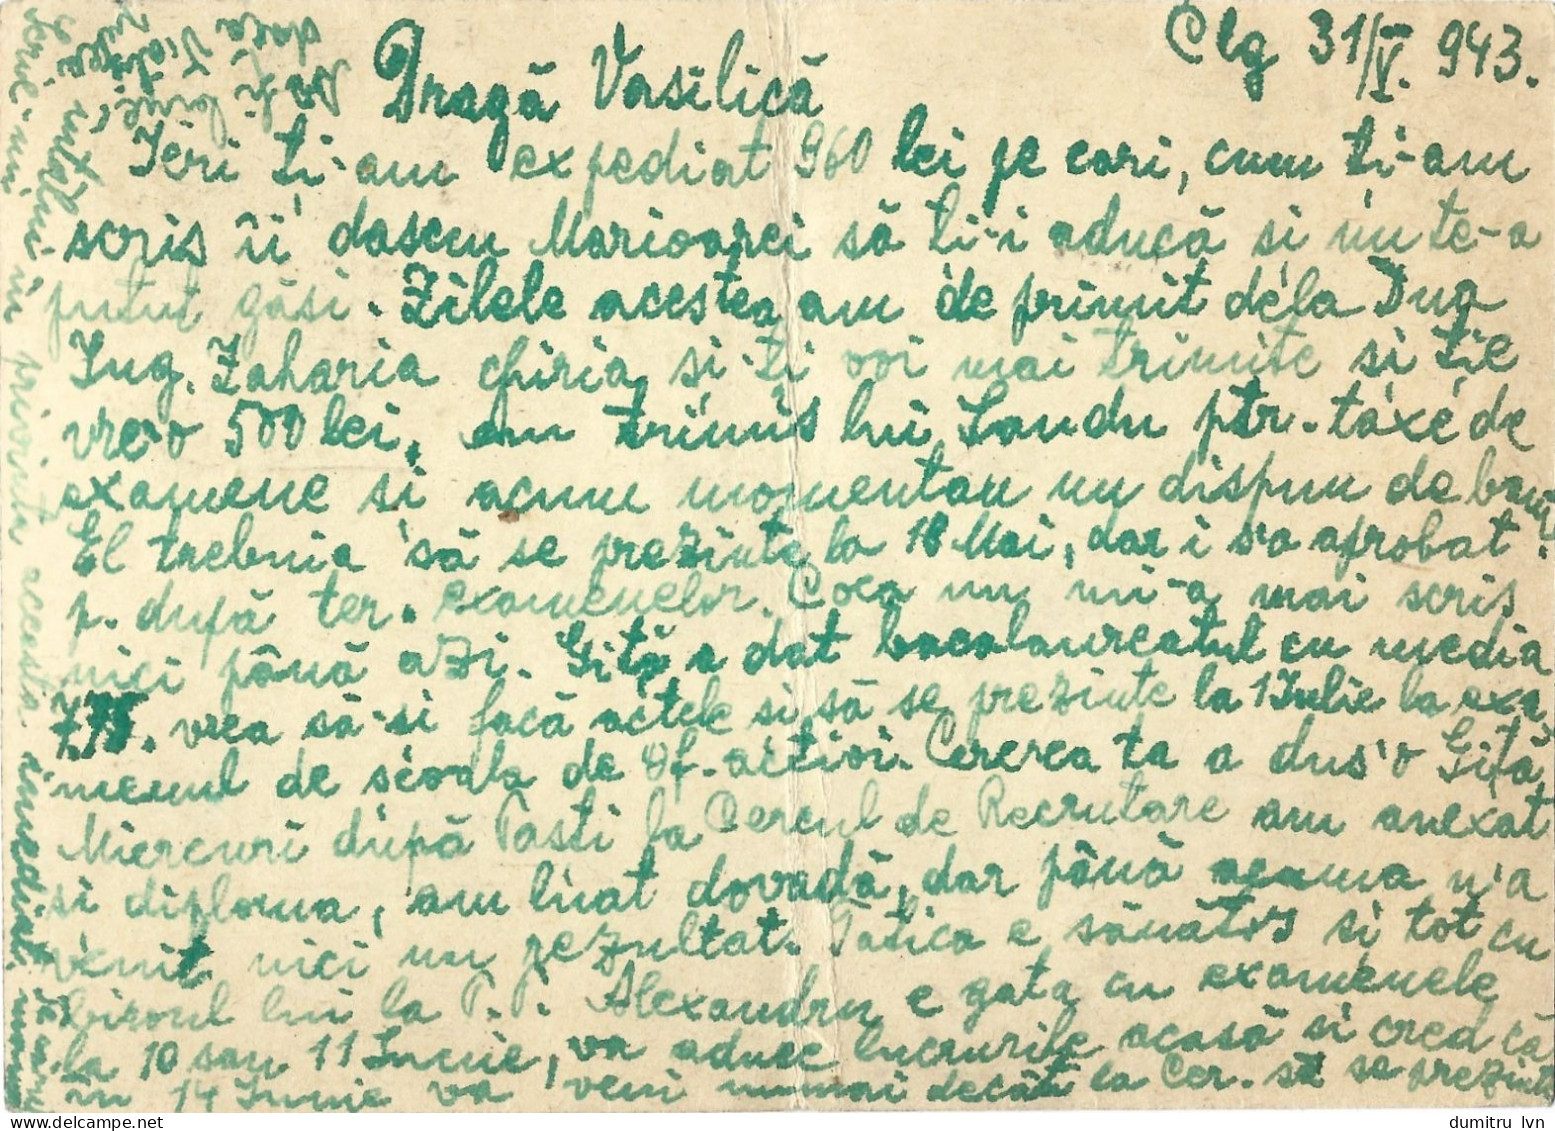 Clg 31/V. 943.
Dragă Vasilică
Ieri ti-am expediat 960 lei pe cari, cum ti-am
scris îi dasem Marioarei să ti-i aducă si nu te-a
putut găsi. Zilele acestea am de primit dela Dna
Ing. Zaharia chiria si-ti voi mai trimite si tie
vre-o 500 lei, am trimis lui Sandu ptr. taxe de
examene si acum momentan nu dispun de bani
El trebuia să se prezinte la 18 Mai, dar i s'a aprobat
p. după ter. examenelor. Coca nu mi-a mai scris
nici până azi. Gită a dat bacalaureatul cu media
7,75. vrea să-si facă actele si să se prezinte la 1 Iulie la exa
menul de scoala de of. activi. Cererea ta a dus'o Gită
Miercuri după Pasti la Cercul de Recrutare am anexat
si diploma, am luat dovadă, dar până acuma n'a
venit nici un rezultat. Tatica e sănătos si tot cu
biroul lui la P.P. Alexandru e gata cu examenele
la 10 sau 11 Iunie, va aduce lucrurile acasă si cred că
în 14 Iunie va veni numai decât la Cer. să se prezinte
Scrie-mi în privinta aceasta imediat.
Ar fi bine, daca